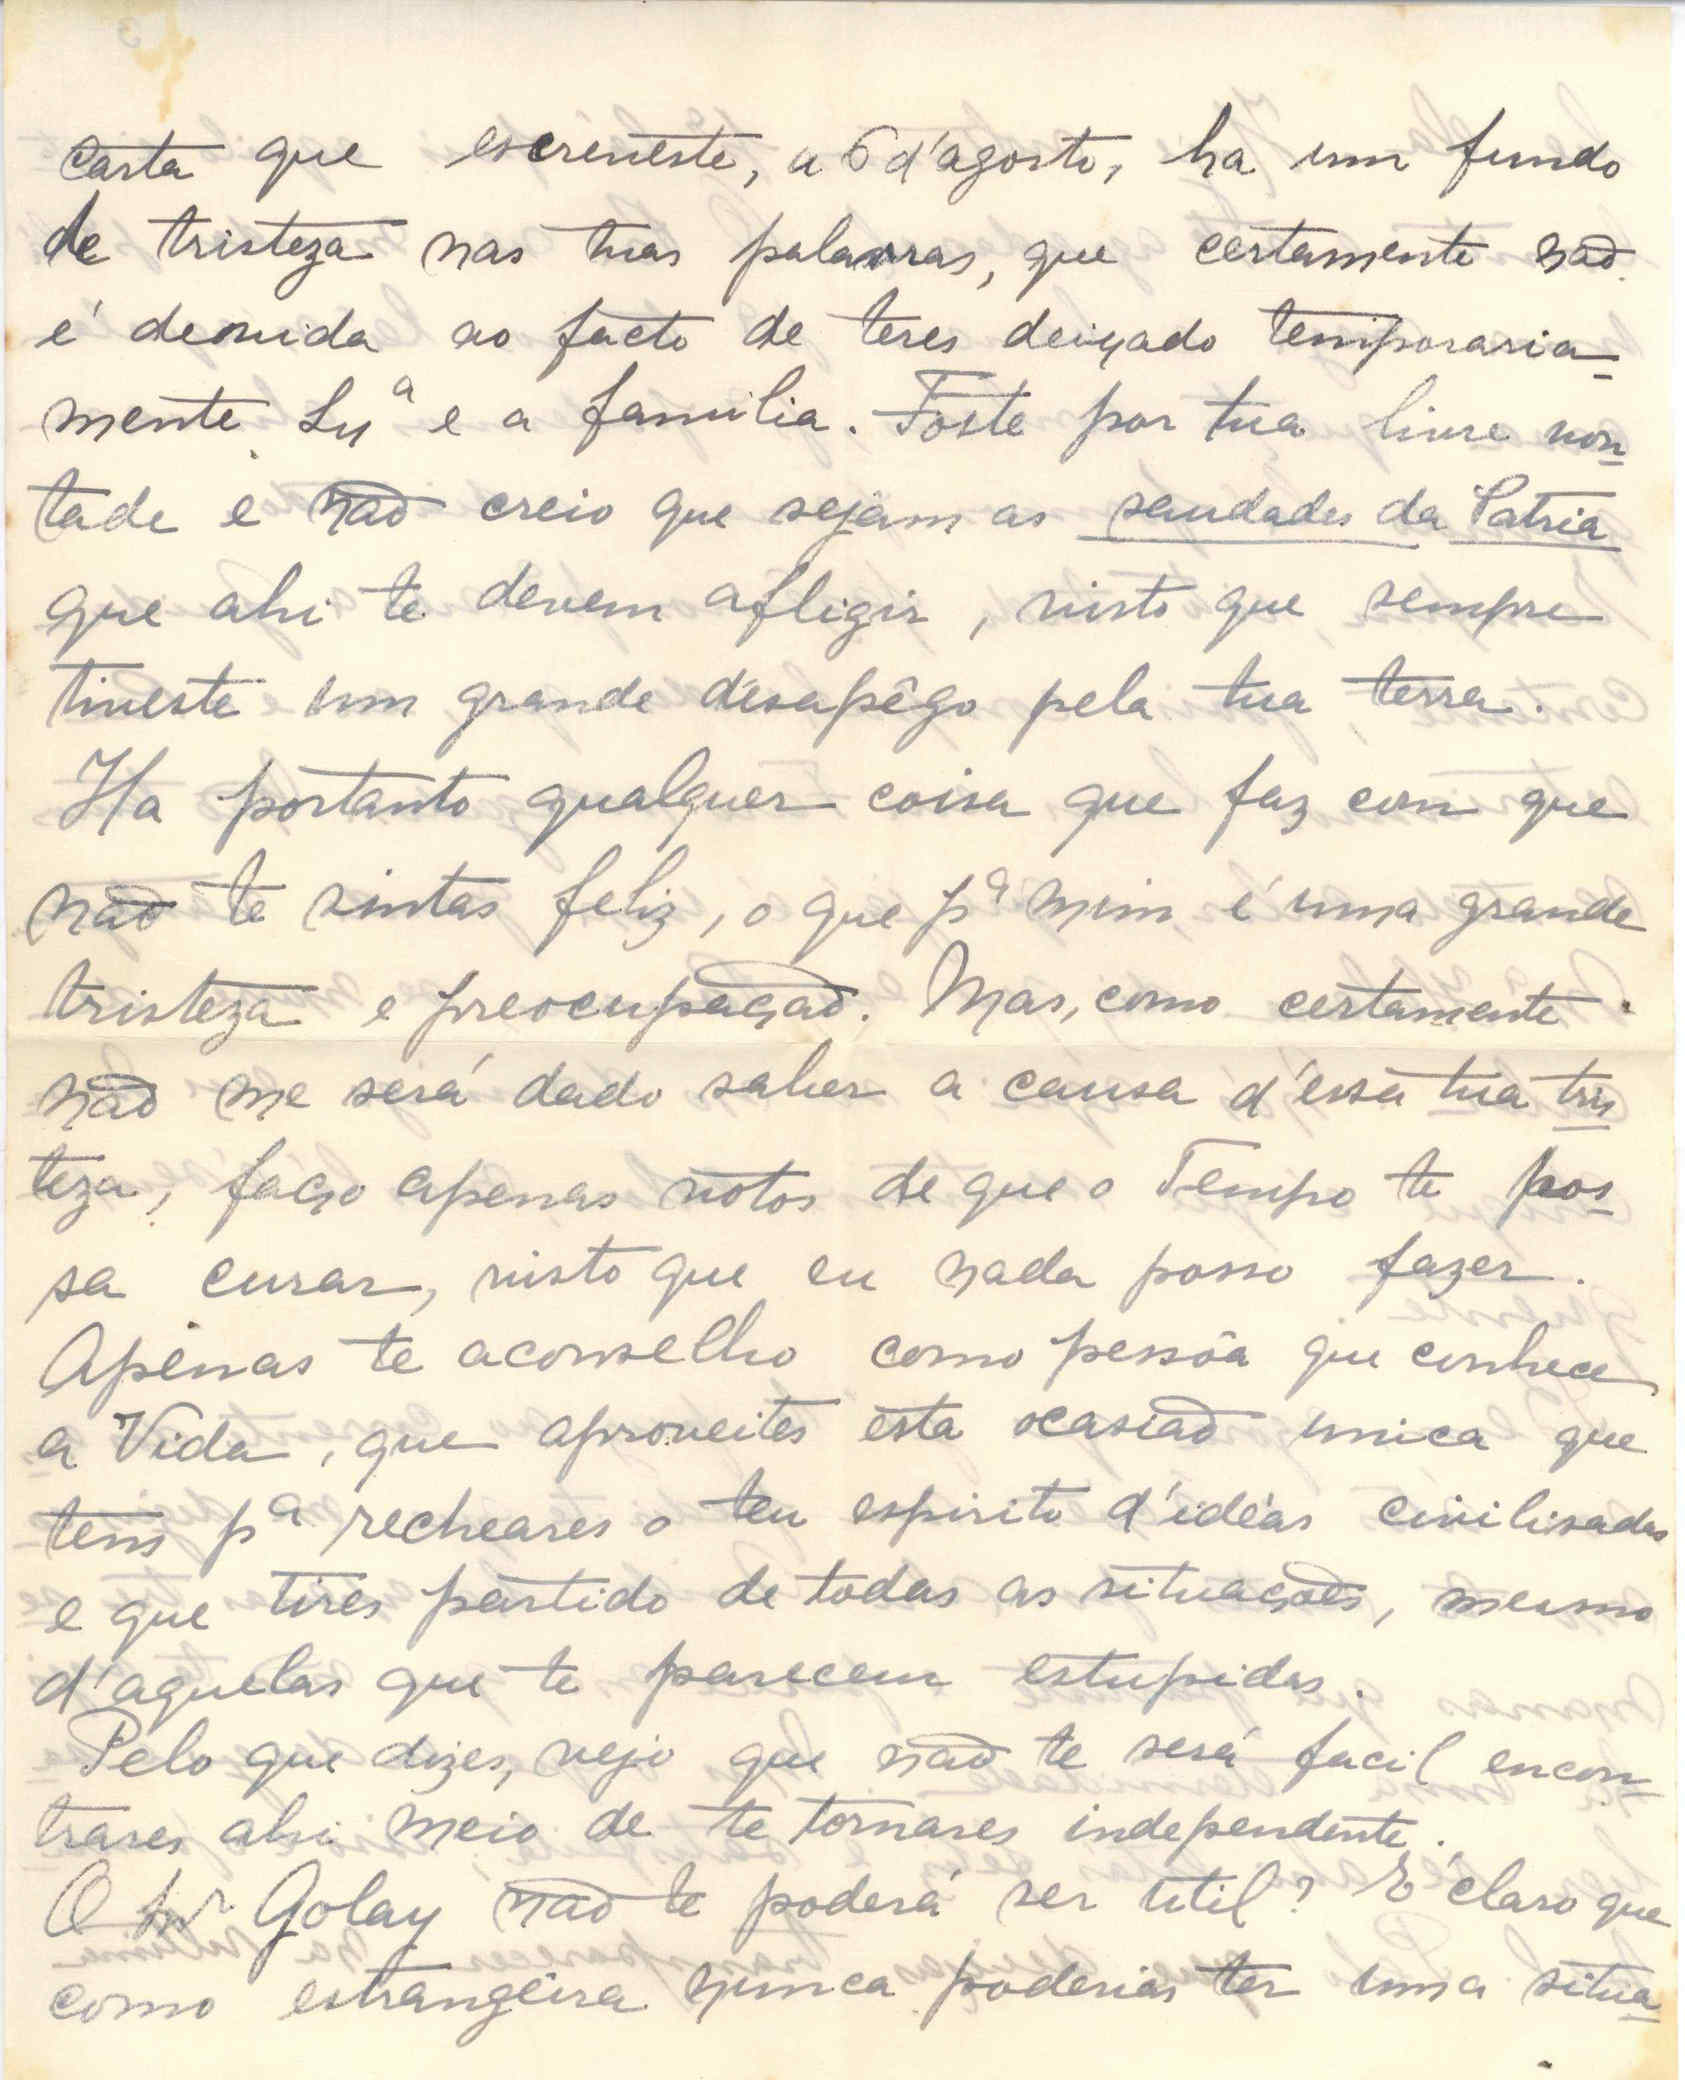 carta que escreveste, a 6 d'agosto, ha um fundo
de tristeza nas tuas palavras, que certamente não
é devida ao facto de teres deixado temporaria-
mente Lxª e a familia. Foste por tua livre von-
tade e não creio que sejam as saudades da Patria
que ahi te devem afligir, visto que sempre
tiveste um grande desapêgo pela tua terra.
Ha portanto qualquer coisa que faz com que
não te sintas feliz, o que pª mim é uma grande
tristeza e preocupação. Mas, como certamente
não me será dado saber a causa d'essa tua tris
teza, faço apenas votos de que o Tempo te pos-
sa curar, visto que eu nada posso fazer.
Apenas te aconselho como pessôa que conhece
a Vida, que aproveites esta ocasião unica que
tens pª recheares o teu espirito d'idéas civilisadas
e que tires partido de todas as situações, mesmo
d'aquelas que te parecem estupidas.
Pelo que dizes, vejo que não te será facil encon-
trares ahi meio de te tornares independente.
O Mr Golay não te poderá ser util? É claro que
como estrangeira nunca poderias ter uma situa-